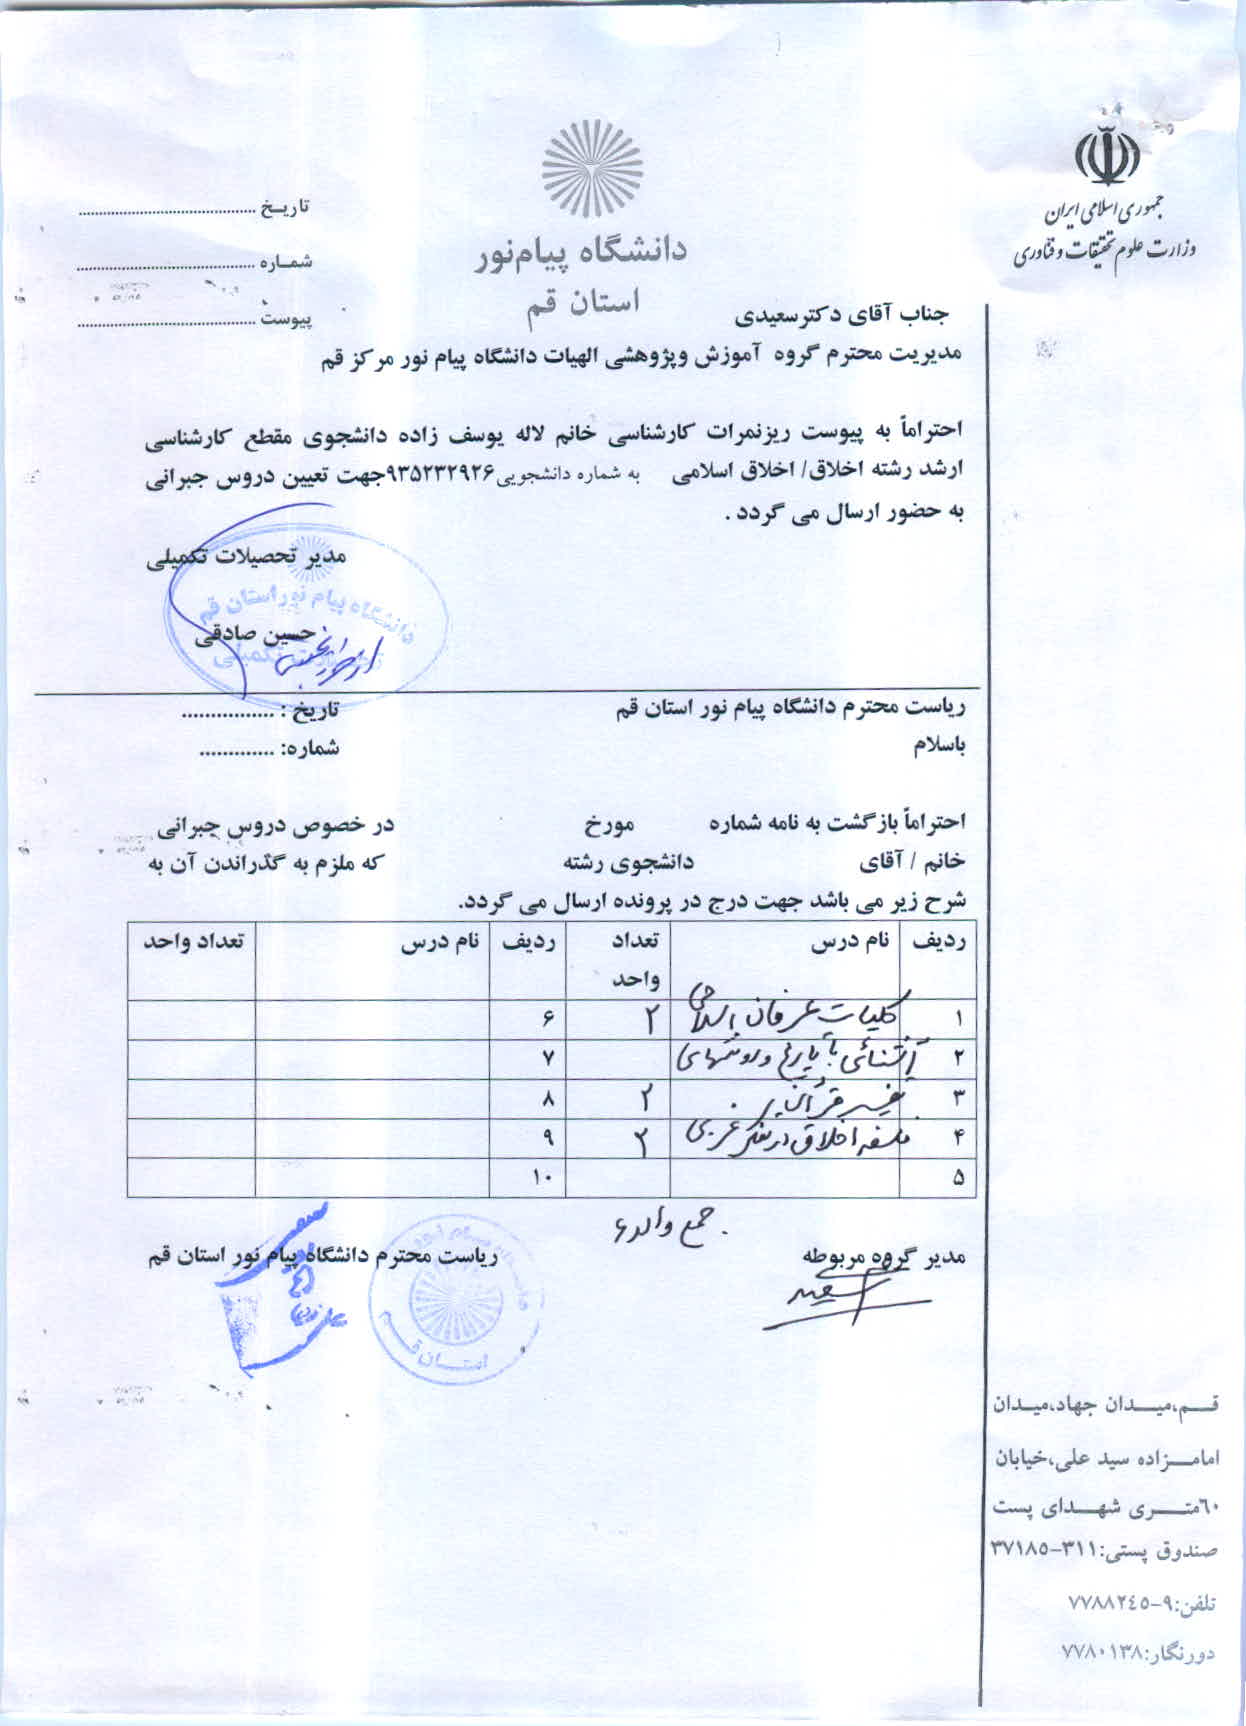 جمهوری اسلامی ایران
وزارت علوم تحقیقات و فناوری
دانشگاه پیام‌نور
استان قم
تاریـخ ..........................................
شمـاره ..........................................
پیوست ..........................................
جناب آقای دکترسعیدی
مدیریت محترم گروه آموزش وپژوهشی الهیات دانشگاه پیام نور مرکز قم
احتراماً به پیوست ریزنمرات کارشناسی خانم لاله یوسف زاده دانشجوی مقطع کارشناسی
ارشد رشته اخلاق/ اخلاق اسلامی به شماره دانشجویی۹۳۵۲۳۲۹۲۶جهت تعیین دروس جبرانی
به حضور ارسال می گردد .
مدیر تحصیلات تکمیلی
دانشگاه پیام نور استان قم
حسین صادقی
تحصیلات تکمیلی
ریاست محترم دانشگاه پیام نور استان قم
تاریخ : ................
باسلام
شماره: .............
احتراماً بازگشت به نامه شماره مورخ در خصوص دروس جبرانی
خانم / آقای دانشجوی رشته که ملزم به گذراندن آن به
شرح زیر می باشد جهت درج در پرونده ارسال می گردد.
ردیف نام درس تعداد واحد ردیف نام درس تعداد واحد
۱ کلیات عرفان اسلامی ۲ ۶
۲ آشنائی با تاریخ و روشهای ۷
۳ تفسیر قرآن ۲ ۸
۴ فلسفه اخلاق در تفکر غربی ۲ ۹
۵ ۱۰
جمع واحد ۶
مدیر گروه مربوطه
ریاست محترم دانشگاه پیام نور استان قم
استـان قـم
قـــم،میـــدان جهاد،میـدان
امامـــزاده سید علی،خیابان
٦٠متــــری شهــدای پست
صندوق پستی:۳۱۱-۳۷۱۸۵
تلفن:۹-۷۷۸۸۲٤٥
دورنگار:۷۷۸۰۱۳۸